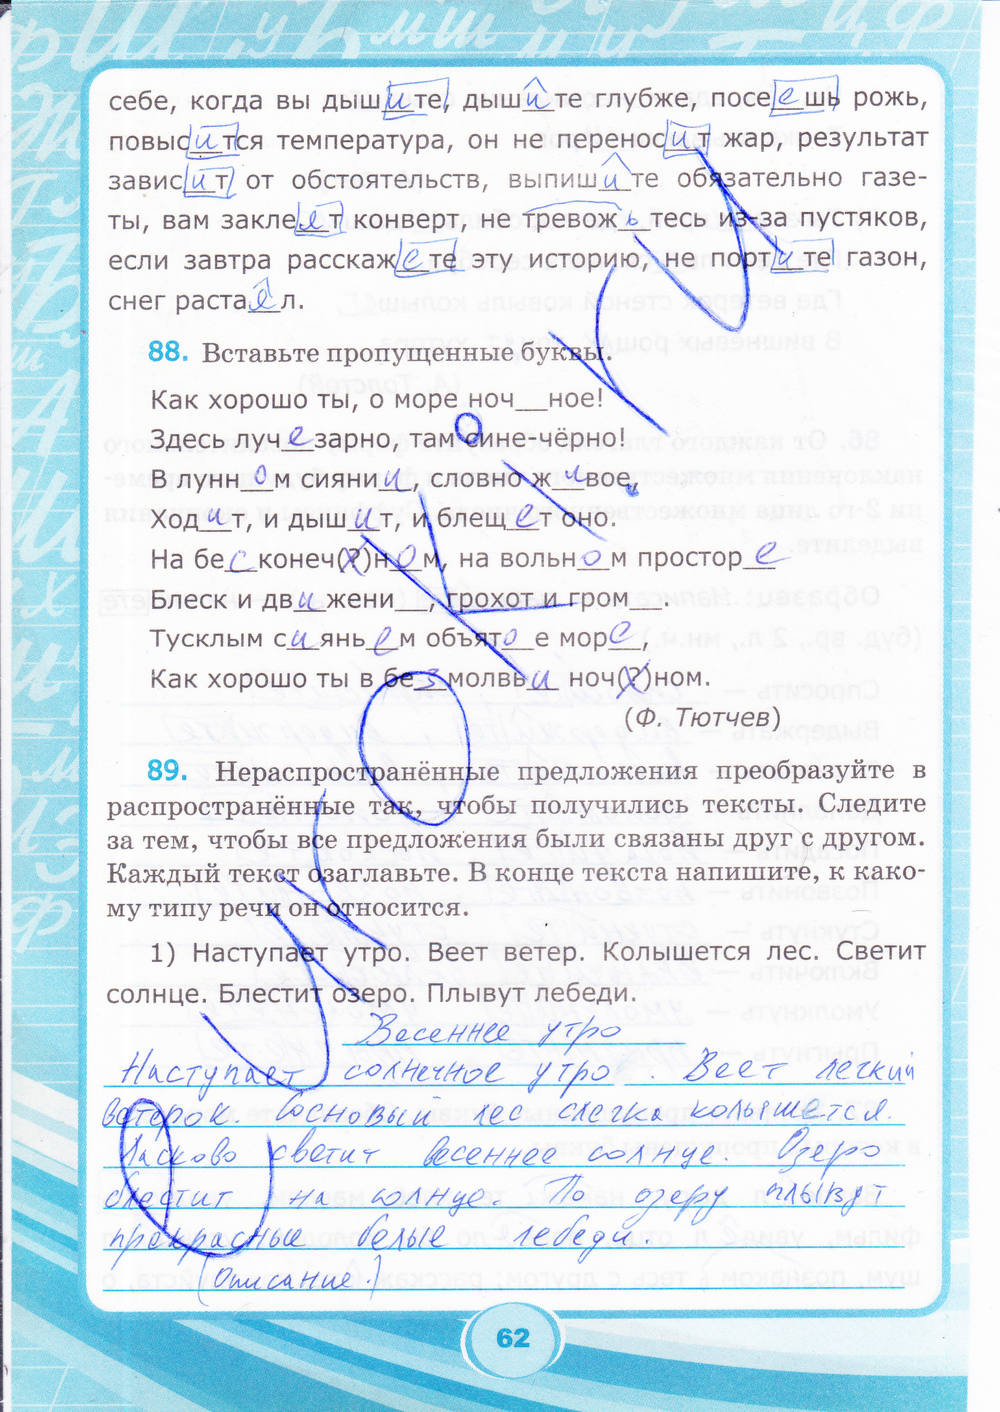 себе, когда вы дышите, дышите глубже, посеешь рожь,
повысится температура, он не переносит жар, результат
зависит от обстоятельств, выпишите обязательно газе-
ты, вам заклеят конверт, не тревожь тесь из-за пустяков,
если завтра расскажете эту историю, не портите газон,
снег растаял.
88. Вставьте пропущенные буквы.
Как хорошо ты, о море ноч__ное!
Здесь лучезарно, там сине-чёрно!
В лунном сиянии, словно живое,
Ходит, и дышит, и блещет оно.
На бесконеч(?)ном, на вольном просторе
Блеск и движени__, грохот и гром__.
Тусклым сияньем объятое море,
Как хорошо ты в безмолвьи ноч(?)ном.
(Ф. Тютчев)
89. Нераспространённые предложения преобразуйте в
распространённые так, чтобы получились тексты. Следите
за тем, чтобы все предложения были связаны друг с другом.
Каждый текст озаглавьте. В конце текста напишите, к како-
му типу речи он относится.
1) Наступает утро. Веет ветер. Колышется лес. Светит
солнце. Блестит озеро. Плывут лебеди.
Весеннее утро
Наступает солнечное утро. Веет легкий
ветерок. Сосновый лес слегка колышется.
Ласково светит весеннее солнце. Озеро
блестит на солнце. По озеру плывут
прекрасные белые лебеди.
(Описание.)
62